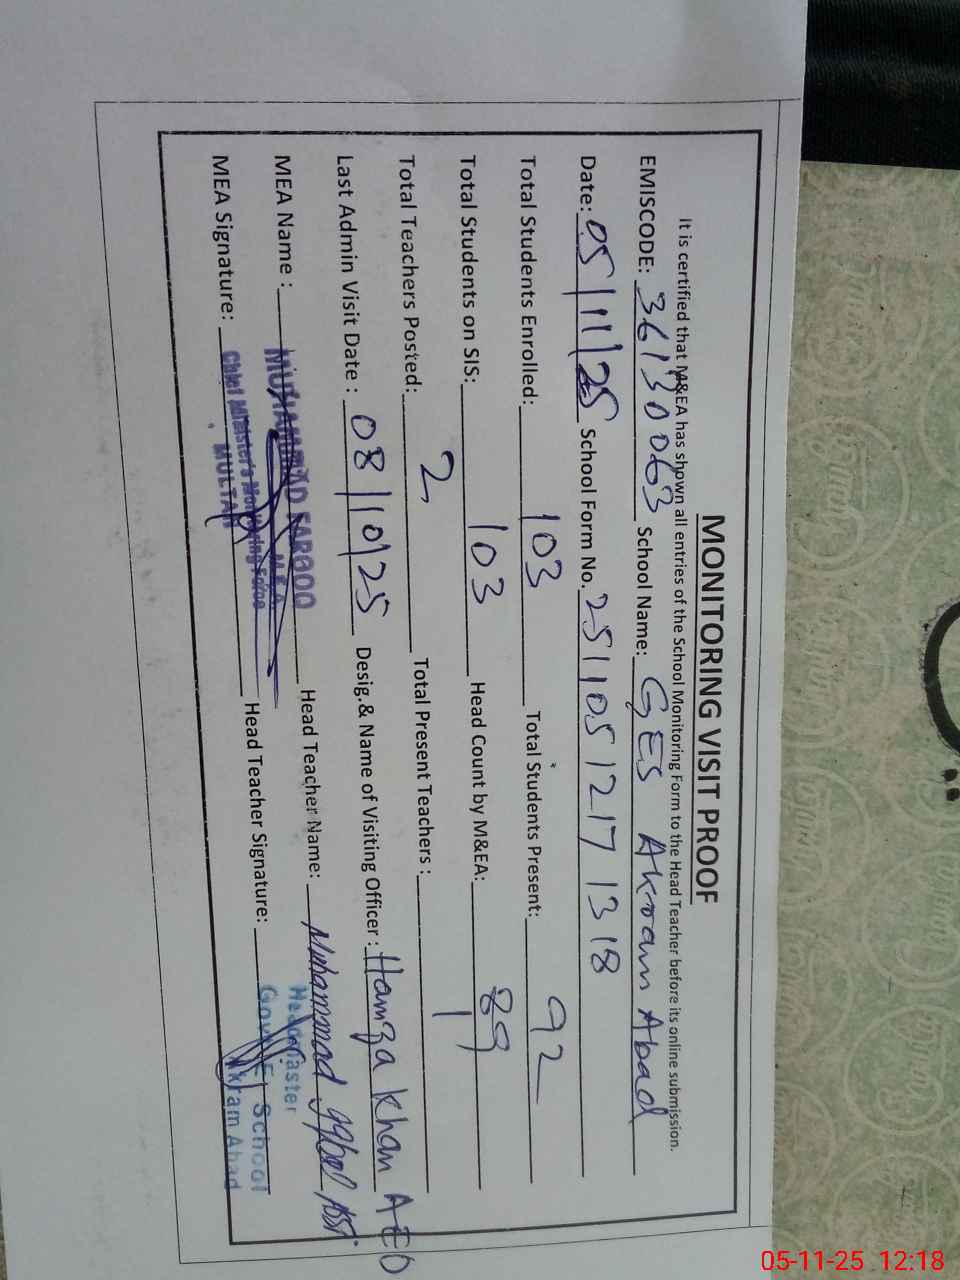 MONITORING VISIT PROOF
It is certified that M&EA has shown all entries of the School Monitoring Form to the Head Teacher before its online submission.
EMISCODE: 36130063 School Name: GES Akram Abad
Date: 05/11/25 School Form No. 251105121713 18
Total Students Enrolled: 103 Total Students Present: 92
Total Students on SIS: 103 Head Count by M&EA: 89
Total Teachers Posted: 2 Total Present Teachers : 1
Last Admin Visit Date : 08/10/25 Desig.& Name of Visiting Officer : Hamza Khan AEO
MEA Name : MUHAMMAD FAROOQ Head Teacher Name: Muhammad Iqbal
M.E.A.
MEA Signature: Chief Minister's Monitoring Force Head Teacher Signature:
MULTAN
Headmaster
Govt. E School
Akram Abad
05-11-25 12:18